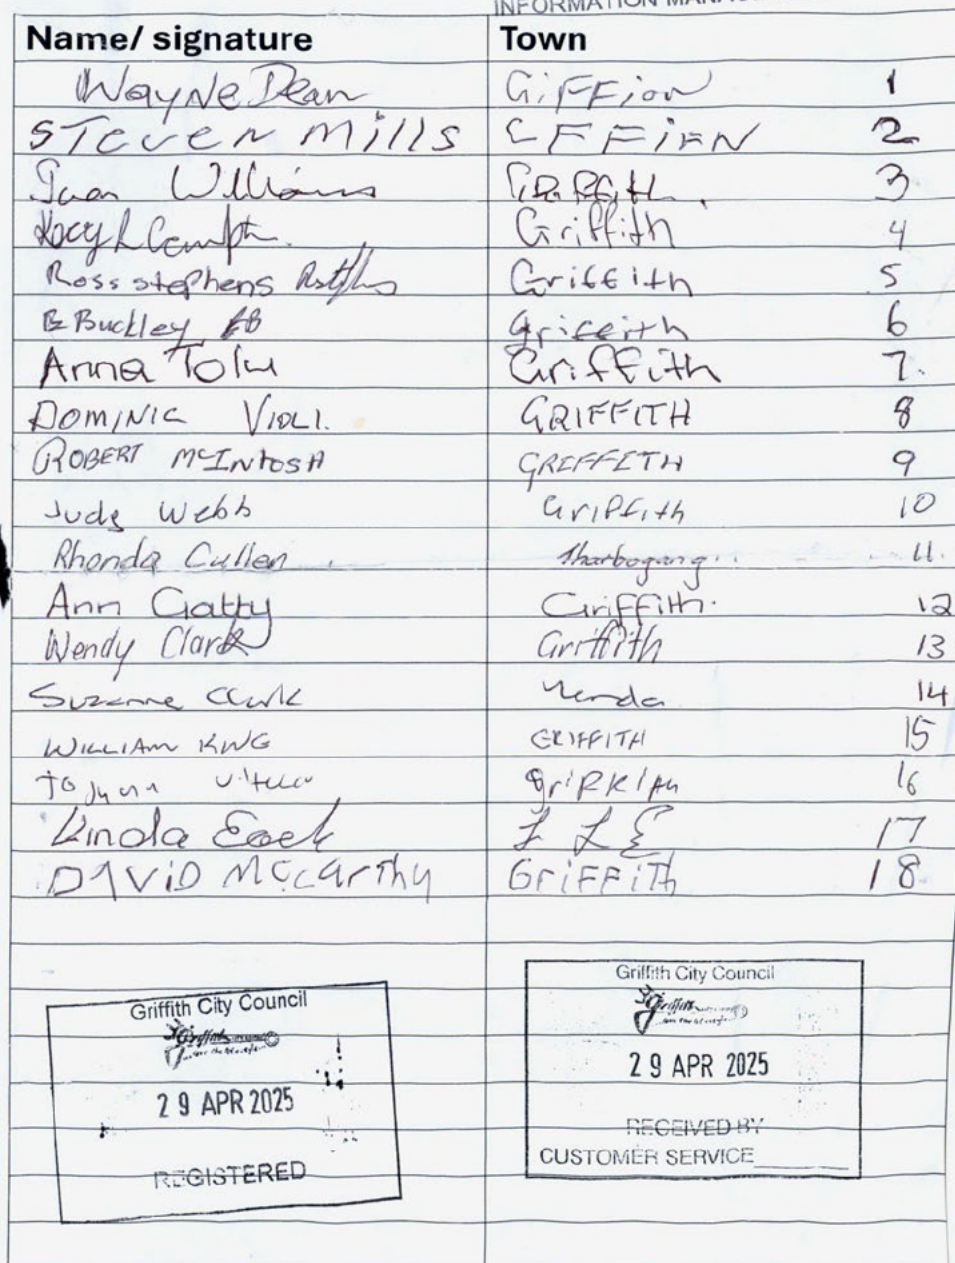 INFORMATION
Name/ signature Town
Wayne Dean GiFFion 1
STeven Mills 2
Williams 3
Griffith 4
Ross stephens Griffith 5
B Buckley BB Griffith 6
Anna Tolu Griffith 7.
DOMINIC VIOLI. GRIFFITH 8
ROBERT McINTOSH GRIFFITH 9
Judy Webb Griffith 10
Rhonda Cullen Tharbogang 11.
Ann Gatty Griffith. 12
Wendy Clark Griffith 13
Suzanne Clark Yenda 14
WILLIAM KING GRIFFITH 15
16
Linda 17
DAViD McCarthy GriFFiTh 18
Griffith City Council
Griffith
29 APR 2025
REGISTERED
Griffith City Council
Griffith
29 APR 2025
RECEIVED BY
CUSTOMER SERVICE